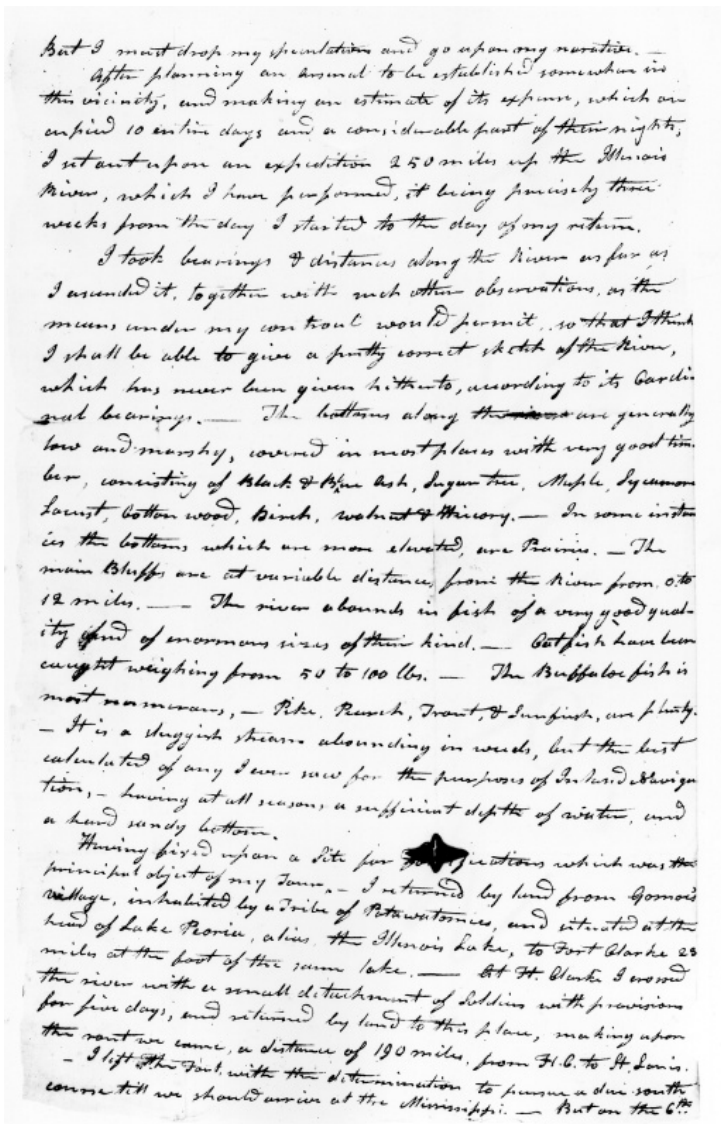 But I must drop my speculations and go upon my narative. —
After planning an Arsenal to be established somewhere in
this vicinity, and making an estimate of its expense, which oc
cupied 10 entire days and a considerable part of their nights,
I set out upon an expedition 250 miles up the Illinois
River, which I have performed, it being precisely three
weeks from the day I started to the day of my return.
I took bearings & distances along the River as far as
I ascended it, together with such other observations, as the
means under my controul would permit, so that I think
I shall be able to give a pretty correct sketch of the River,
which has never been given hitherto, according to its Cardi
nal bearings. — The bottoms along the river are generally
low and marshy, covered in most places with very good tim-
ber, consisting of Black & Blue Ash, Sugar tree, Maple, Sycamore
Locust, Cotton wood, Birch, walnut & Hickory. — In some instan
ces the bottoms which are more elevated, are Prairies. — The
main Bluffs are at variable distances from the River from 0 to
12 miles. — The river abounds in fish of a very good qual-
ity and of enormous sizes of their kind. — Catfish have been
caught weighing from 50 to 100 lbs. — The Buffaloe fish is
most numerous, — Pike, Pearch, Trout, & Sunfish, are plenty.
— It is a sluggish stream abounding in weeds, but the best
calculated of any I ever saw for the purposes of Inland Naviga
tion, — having at all seasons a sufficient depth of water, and
a hard sandy bottom.
Having fixed upon a Site for which was the
principal object of my Tour, — I returned by land from Gomo's
village, inhabited by a Tribe of Potawatomies, and situated at the
head of Lake Peoria, alias the Illinois Lake, to Fort Clarke 23
miles at the foot of the same lake. — At Ft. Clarke I crossed
the river with a small detachment of Soldiers with provisions
for five days, and returned by land to this place, making upon
the rout we came, a distance of 190 miles, from Ft. C. to St. Louis.
— I left the Fort, with the determination to pursue a due south
course till we should arrive at the Mississippi. — But on the 6th